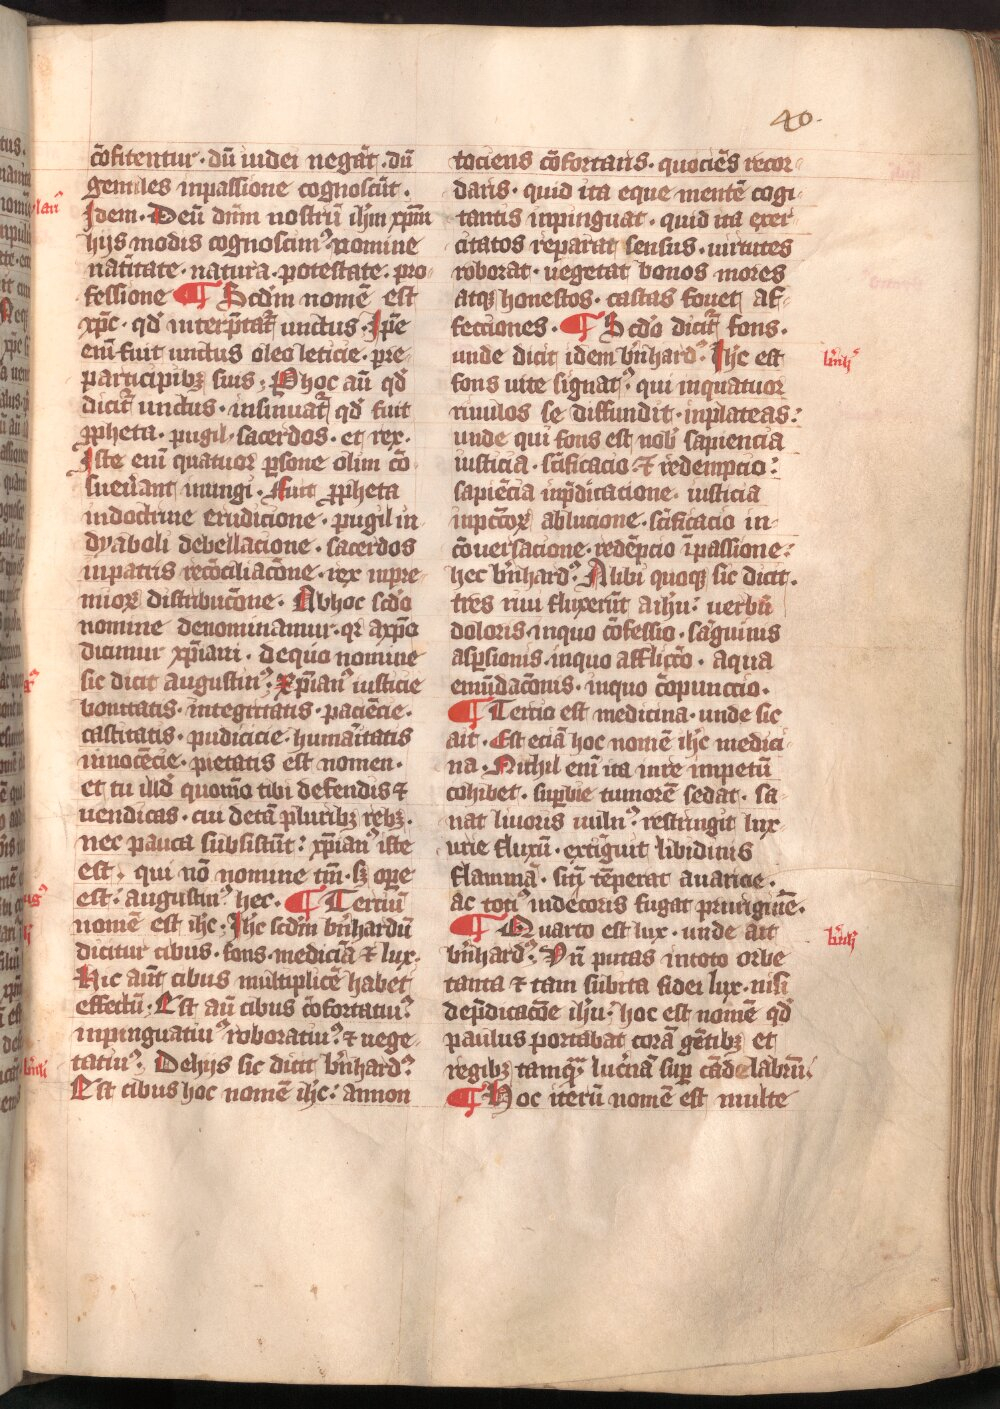 40.
c̄ofitentur · dū iudei negāt · dū
gentiles inpassione cognoscūt ·
Idem · Deū dn̄m nostrū ih̄m xp̄m
hijs modis cognoscim᷒ · nomine
natiītate · natura · potestate · pro-
fessione ¶ Scd̄m nomē est
xp̄c · qd̄ interp̄tat᷑ unctus · Ip̄e
enī fuit unctus oleo leticie · pre-
participibꝫ suis · P hoc aū qd̄
dicit᷑ unctus · insinuat᷑ qd̄ fuit
ꝓpheta · pugil · sacerdos · et rex ·
Iste enī quatuor ꝑsone olim cō
sueuerant inungi · Fuit ꝓpheta
indoctrine erudicione · pugil in-
dyaboli debellacione · sacerdos
inpatris recōciliacōne · rex inpre-
mioꝝ distribucōne · Abhoc scd̄o
nomine denominamur · qr axp̄o
dicimur xp̄iani · dequo nomine
sic dicit augustin᷒ · Xp̄ian᷒ iusticie
bonitatis · integritatis · paciēcie ·
castitatis · pudicicie · humaītatis
innocēcie · pietatis est nomen ·
et tu illd̄ quom̄o tibi defendis ⁊
uendicas · cui detā pluribꝫ rebꝫ ·
nec pauca subsistūt : xp̄ian᷒ iste
est · qui nō nomine tm̄ · sꝫ oꝑe
est : augustin᷒ hec · ¶ Tertiū
nomē est ih̄c · Ih̄c scd̄m b̄nhardū
dicitur cibus · fons · medicīa ⁊ lux ·
Hic aūt cibus multiplicē habet
effectū · Est aū cibus c̄ofortatiu᷒
inpinguatiu᷒ roboratiu᷒ · ⁊ uege-
tatiu᷒ · Dehijs sic dicit b̄nhard᷒
Est cibus hoc nomē ih̄c · annon
tociens c̄ofortaris · quociēs recor-
daris · quid ita eque mentē cogi-
tantis inpinguat · quid ita exer-
citatos reparat sensus · uirtutes
roborat · uegetat bonos mores
atqꝫ honestos · castas fouet af-
fecciones · ¶ Scd̄o dicit᷑ fons ·
unde dicit idem b̄nhard᷒ Ih̄c est
fons uite signat᷒ · qui inquatuor
riuulos se diffundit · inplateas :
unde qui fons est nob̄ sapiencia
iusticia · scīficacio ⁊ redempcio :
sapiēcia inp̄dicacione · iusticia
inpcc̄toꝝ ablucione · scīficacio in-
c̄ouersacione · redēpcio īpassione :
hec b̄nhard᷒ · Alibi quoqꝫ sic dicit ·
tres riui fluxerūt aih̄u : uerbū
doloris · inquo c̄ofessio · sāguinis
aspersionis · inquo afflicc̄o · aqua
emūdacōnis · inquo c̄opunccio ·
¶ Tercio est medicina · unde sic
ait · Est eciā hoc nomē ih̄c medici-
na · Nichil enī ita inre impetū
cohibet · suꝑbie tumorē sedat · sa-
nat liuoris uuln᷒ · restringit lux-
urie fluxū · extīguit libidinis
flammā · sitī tēperat auaricie ·
ac toti᷒ indecoris fugat pruriginē ·
¶ Quarto est lux · unde ait
b̄nhard᷒ · Vn̄ putas intoto orbe
tanta ⁊ tam subita fidei lux · nisi
dep̄dicacōe ih̄u · hoc est nomē qd̄
paulus portabat corā gētibꝫ et
regibꝫ tamqᷓ lucnā suꝑ cādelabrū ·
¶ Hoc iterū nomē est multe